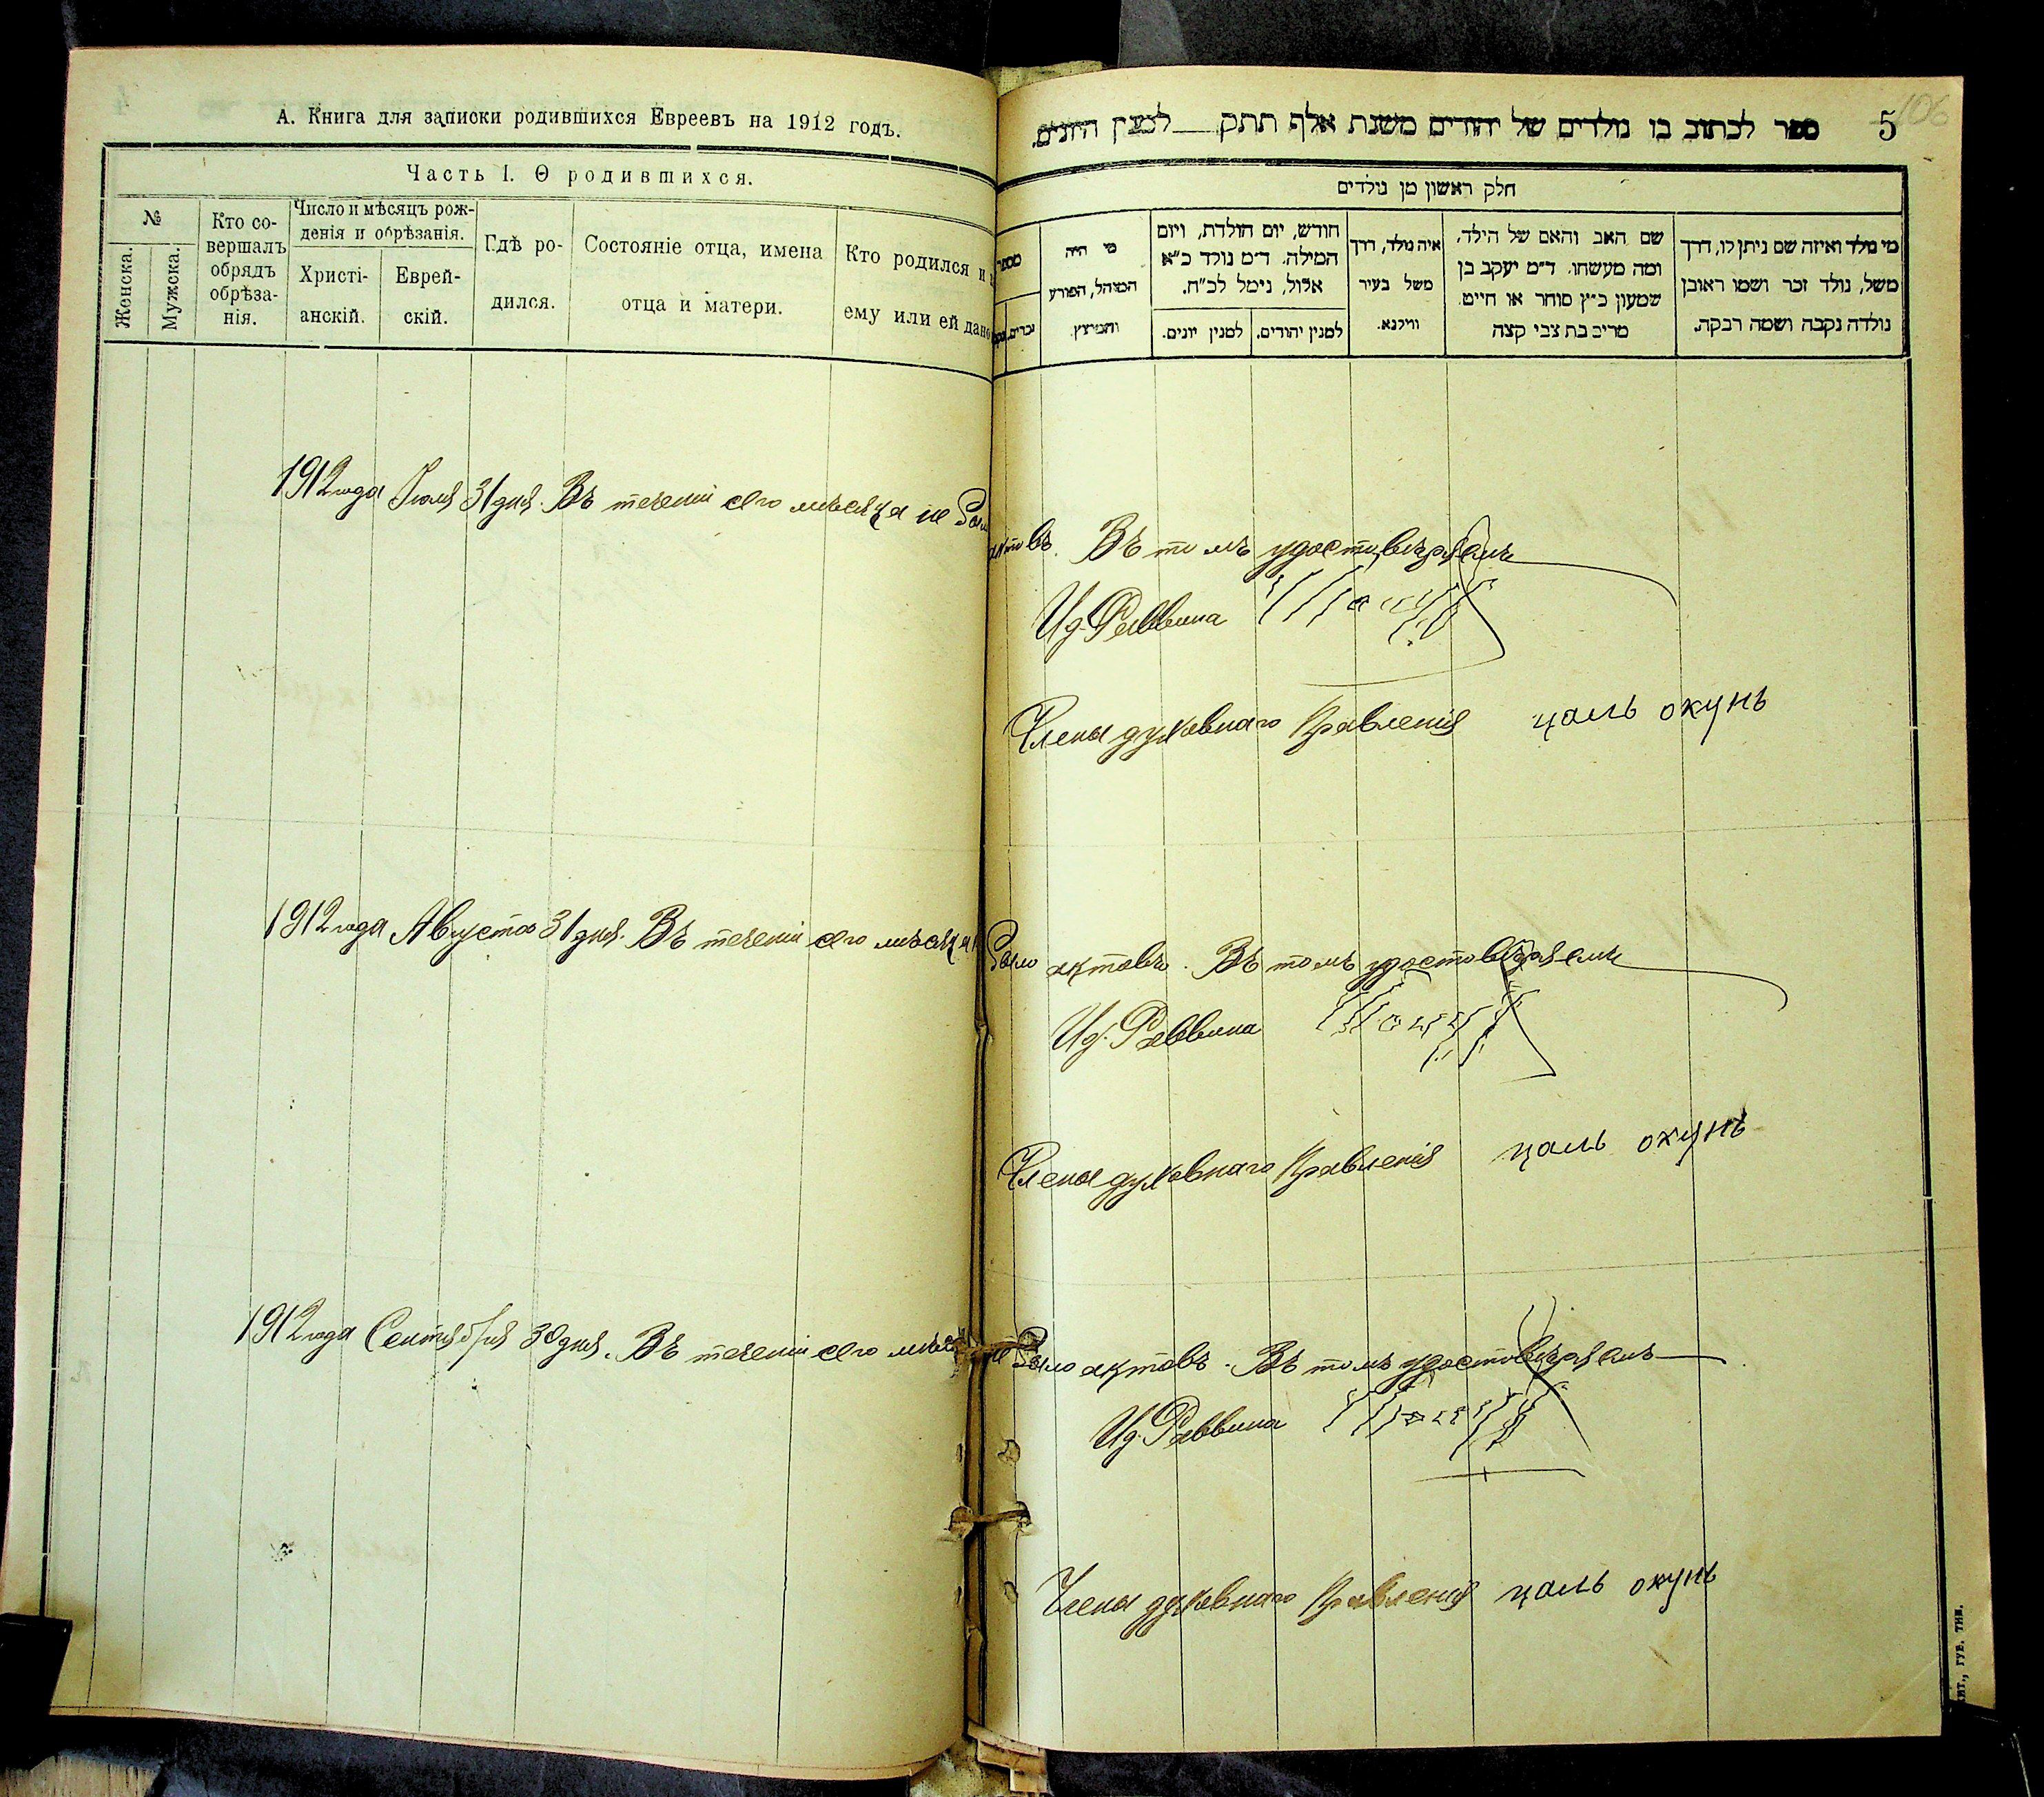 А. Книга для записки родившихся Евреевъ на 1912 годъ.
Часть I. О родившихся.
№
Женска.
Мужска.
Кто со-
вершалъ
обрядъ
обрѣза-
нія.
Число и мѣсяцъ рож-
денія и обрѣзанія.
Христі-
анскій.
Еврей-
скій.
Гдѣ ро-
дился.
Состояніе отца, имена
отца и матери.
Кто родился и
ему или ей дано
106
5
ספר לכתוב בו נולדים של יהודים משנת אלף תתק למנין היונים.
חלק ראשון מן נולדים
מי נולד ואיזה שם ניתן לו, דרך
משל, נולד זכר ושמו ראובן
נולדה נקבה ושמה רבקה.
שם האב והאם של הילד,
ומה מעשהו. ד״מ יעקב בן
שמעון כ״ץ סוחר או חייט
מריב בת צבי קצה
איה נולד, דרך
משל בעיר
ווילנא.
חודש, יום הולדת, ויום
המילה. ד״מ נולד כ״א
אלול, נימל לכ״ח.
למנין יהודים.
למנין יונים.
מי היה
המוהל, הפורע
והמוצץ.
מספר
זכרים.
1912 года Іюля 31 дня. Въ теченіи сего мѣсяца не было
актовъ. Въ томъ удостовѣряемъ
И д. Раввина
Члены духовнаго правленія цаль окунь
1912 года Августа 31 дня. Въ теченіи сего мѣсяца
было актовъ. Въ томъ удостовѣряемъ
И д. Раввина
Члены духовнаго правленія цаль окунь
1912 года Сентября 30 дня. Въ теченіи сего мѣсяца не было актовъ. Въ томъ удостовѣряемъ
И д. Раввина
Члены духовнаго правленія цаль окунь
губ. тип.